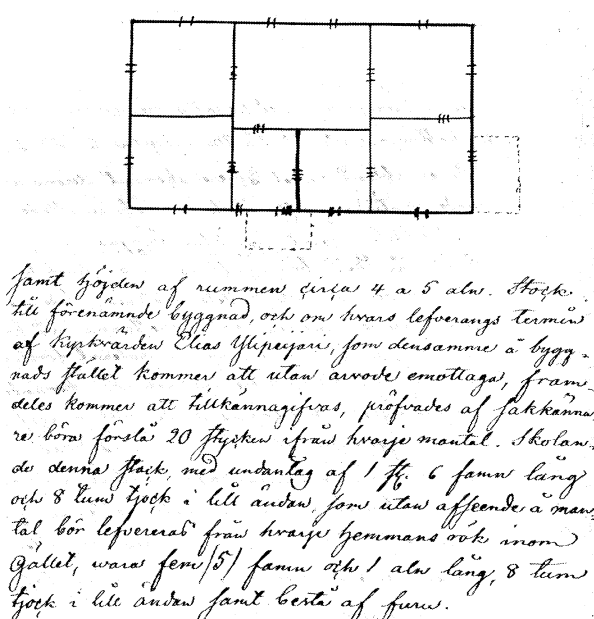 samt höjden af rummen circa 4 a 5 aln. Stock
till förenämnde byggnad, och om hvars lefverangs termin
af kyrkvärden Elias Ylipeijari, som densamme å bygg-
nads stället kommer att utan arvode emottaga, fram-
deles kommer att tillkännagifvas, pröfvades af sakkänna-
re böra förslå 20 stycken ifrån hvarje mantal. Skolan-
de denna stock, med undantag af 1 st. 6 famn lång
och 8 tum tjock i lill ändan, som utan afseende å man-
tal bör levereras från hvarje hemmans rök inom
Gället, wara fem (5) famn och 1 aln lång, 8 tum
tjock i lill ändan samt bestå af furu.